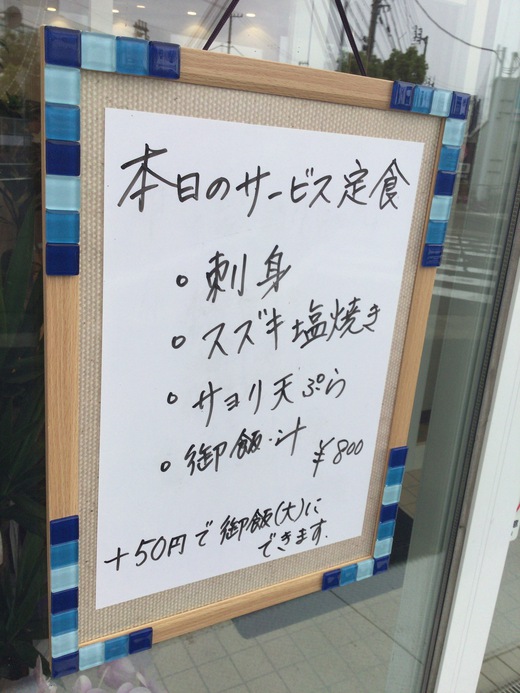 本日のサービス定食
。刺身
。スズキ塩焼き
。サヨリ天ぷら
。御飯・汁
¥800
+50円で御飯(大)に
できます.